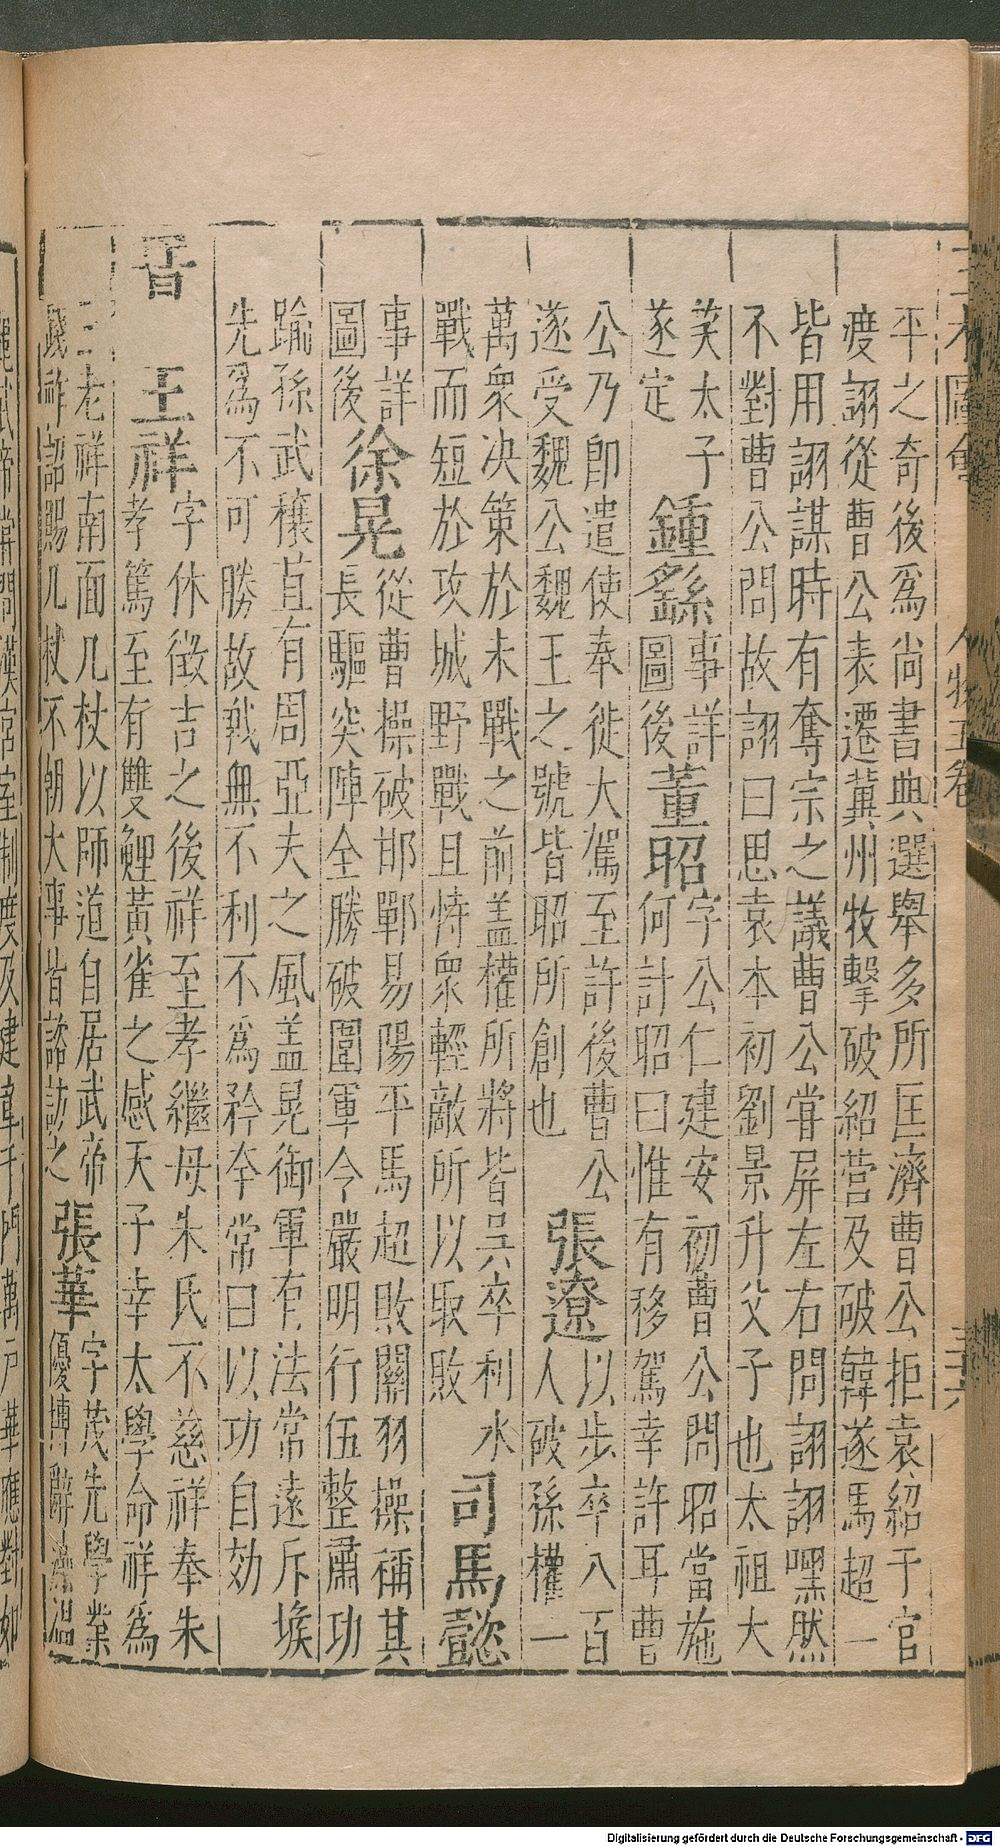 三才圖會 人物五卷 三十六
平之奇後爲尚書典選舉多所匡濟曹公拒袁紹于官
渡詡從曹公表遷冀州牧擊破紹營及破韓遂馬超一
皆用詡謀時有奪宗之議曹公甞屏左右問詡詡嘿然
不對曹公問故詡曰思袁本初劉景升父子也太祖大
笑太子
遂定
鍾繇
事詳
圖後
董昭
字公仁建安初曹公問昭當施
何計昭曰惟有移駕幸許耳曹
公乃卽遣使奉徙大駕至許後曹公
遂受魏公魏王之號皆昭所創也
張遼
以步卒八百
人破孫權一
萬衆决策於未戰之前盖權所將皆吳卒利水
戰而短於攻城野戰且恃衆輕敵所以取敗
司馬懿
事詳
圖後
徐晃
從曹操破邯鄲易陽平馬超敗關羽操稱其
長驅突陣全勝破圍軍令嚴明行伍整肅功
踰孫武穰苴有周亞夫之風盖晃御軍有法常遠斥堠
先爲不可勝故戰無不利不爲矜夸常曰以功自効
晉
王祥
字休徵吉之後祥至孝繼母朱氏不慈祥奉朱
孝篤至有雙鯉黃雀之感天子幸太學命祥爲
三老祥南面几杖以師道自居武帝
踐祚詔賜几杖不朝大事皆諮訪之
張華
字茂先學業
優博辭藻溫
麗武帝甞問漢宮室制度及建章千門萬戶華應對如
Digitalisierung gefördert durch die Deutsche Forschungsgemeinschaft - DFG